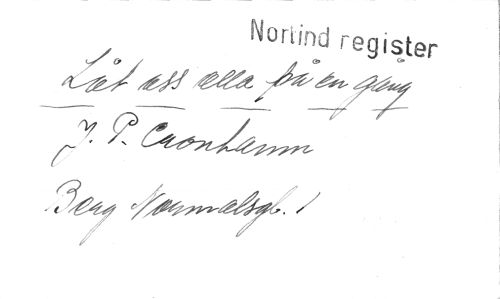 Norlind register
Låt oss alla på en gång
J. P. Cronhamn
Berg Normalsgb. 1